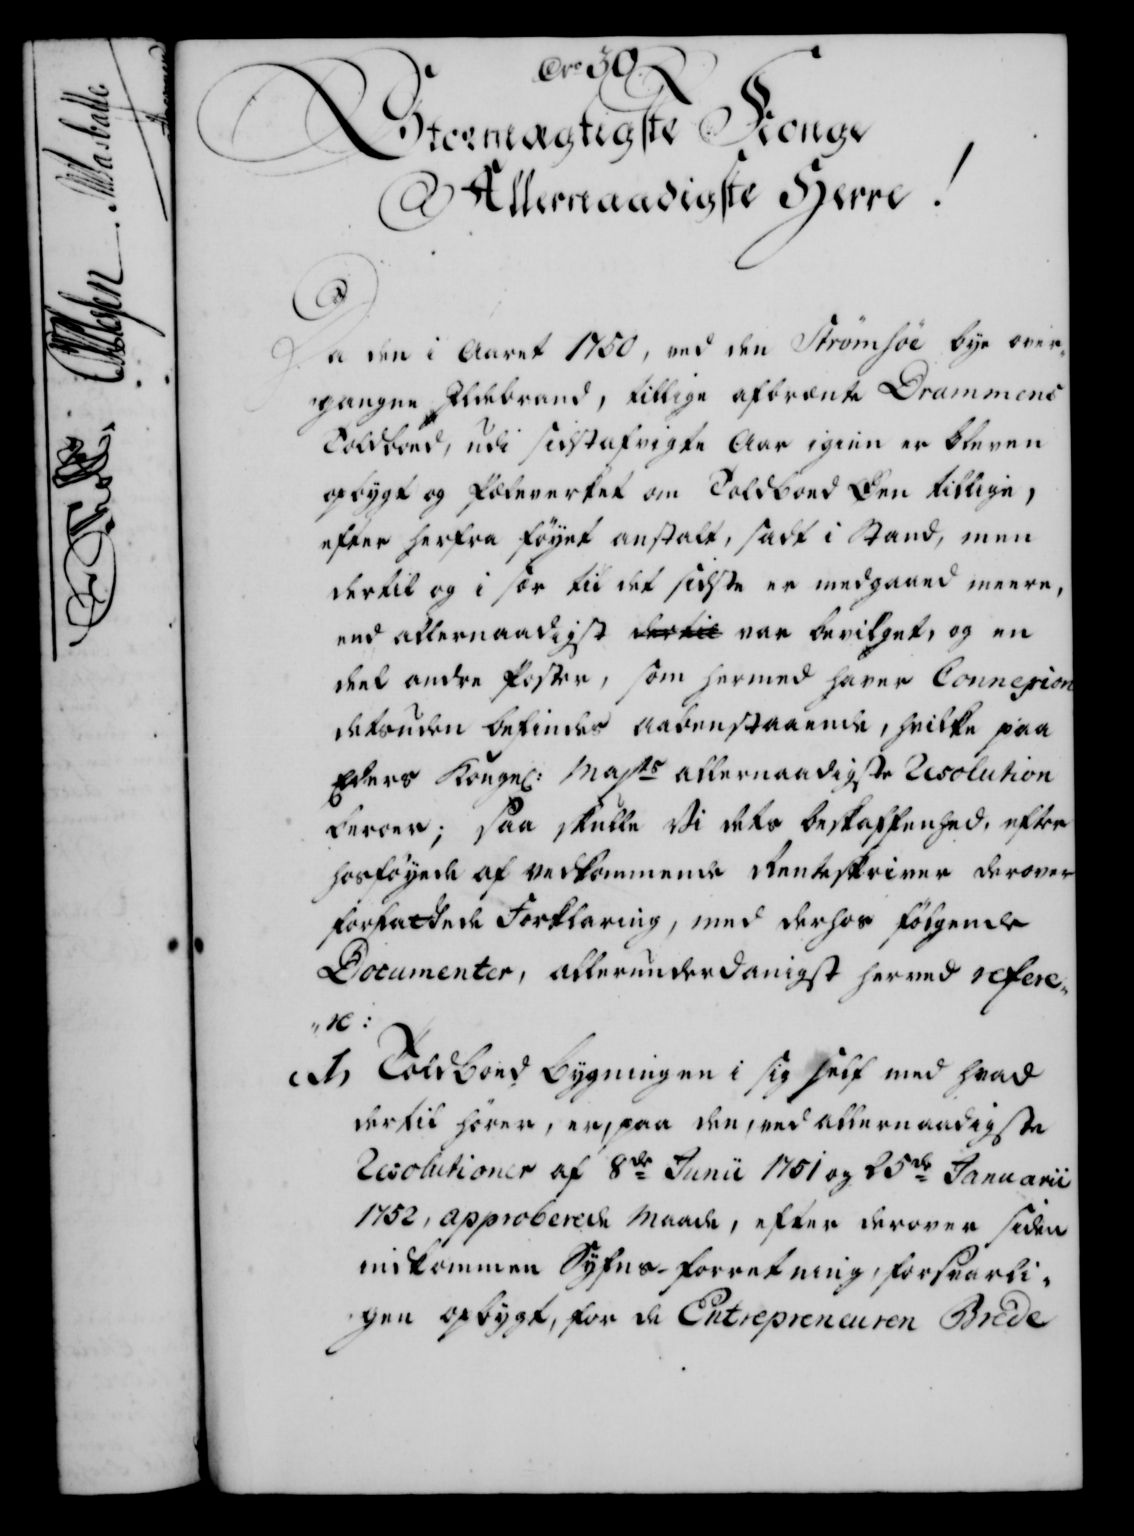 No. 30.
Stormægtigste Konge
Allernaadigste Herre!
Da den i Aaret 1750, ved den Strømsøe bye over-
gangne Ildebrand, tillige afbrænte Drammens
Toldboed, udi sidstafvigte Aar igien er bleven
opbygt og Pæleverket om Toldboed Øen tillige,
efter herfra føyet anstalt, sadt i Stand, men
dertil og i sær til det sidste er medgaaed meere,
end allernaadigst dertil var bevilget, og en
deel andre Poster, som hermed haver Connexion
desuden befindes aabenstaaende, hvilke paa
Eders Kongel: Majts allernaadigste Resolution
beroer; saa skulle Vi dets beskaffenhed, efter
hosføyede af vedkommende Renteskriver derover
forfattede Forklaring, med derhos følgende
Documenter, allerunderdanigst herved refere-
re:
1, Toldboed bygningen i sig self med hvad
dertil hører, er, paa den, ved allernaadigste
Resolutioner af 8de Junii 1751 og 25de Januarii
1752, approberede Maade, efter derover siden
indkommen Syfns-forretning, forsvarli-
gen opbygt, for de Entrepreneuren Brede